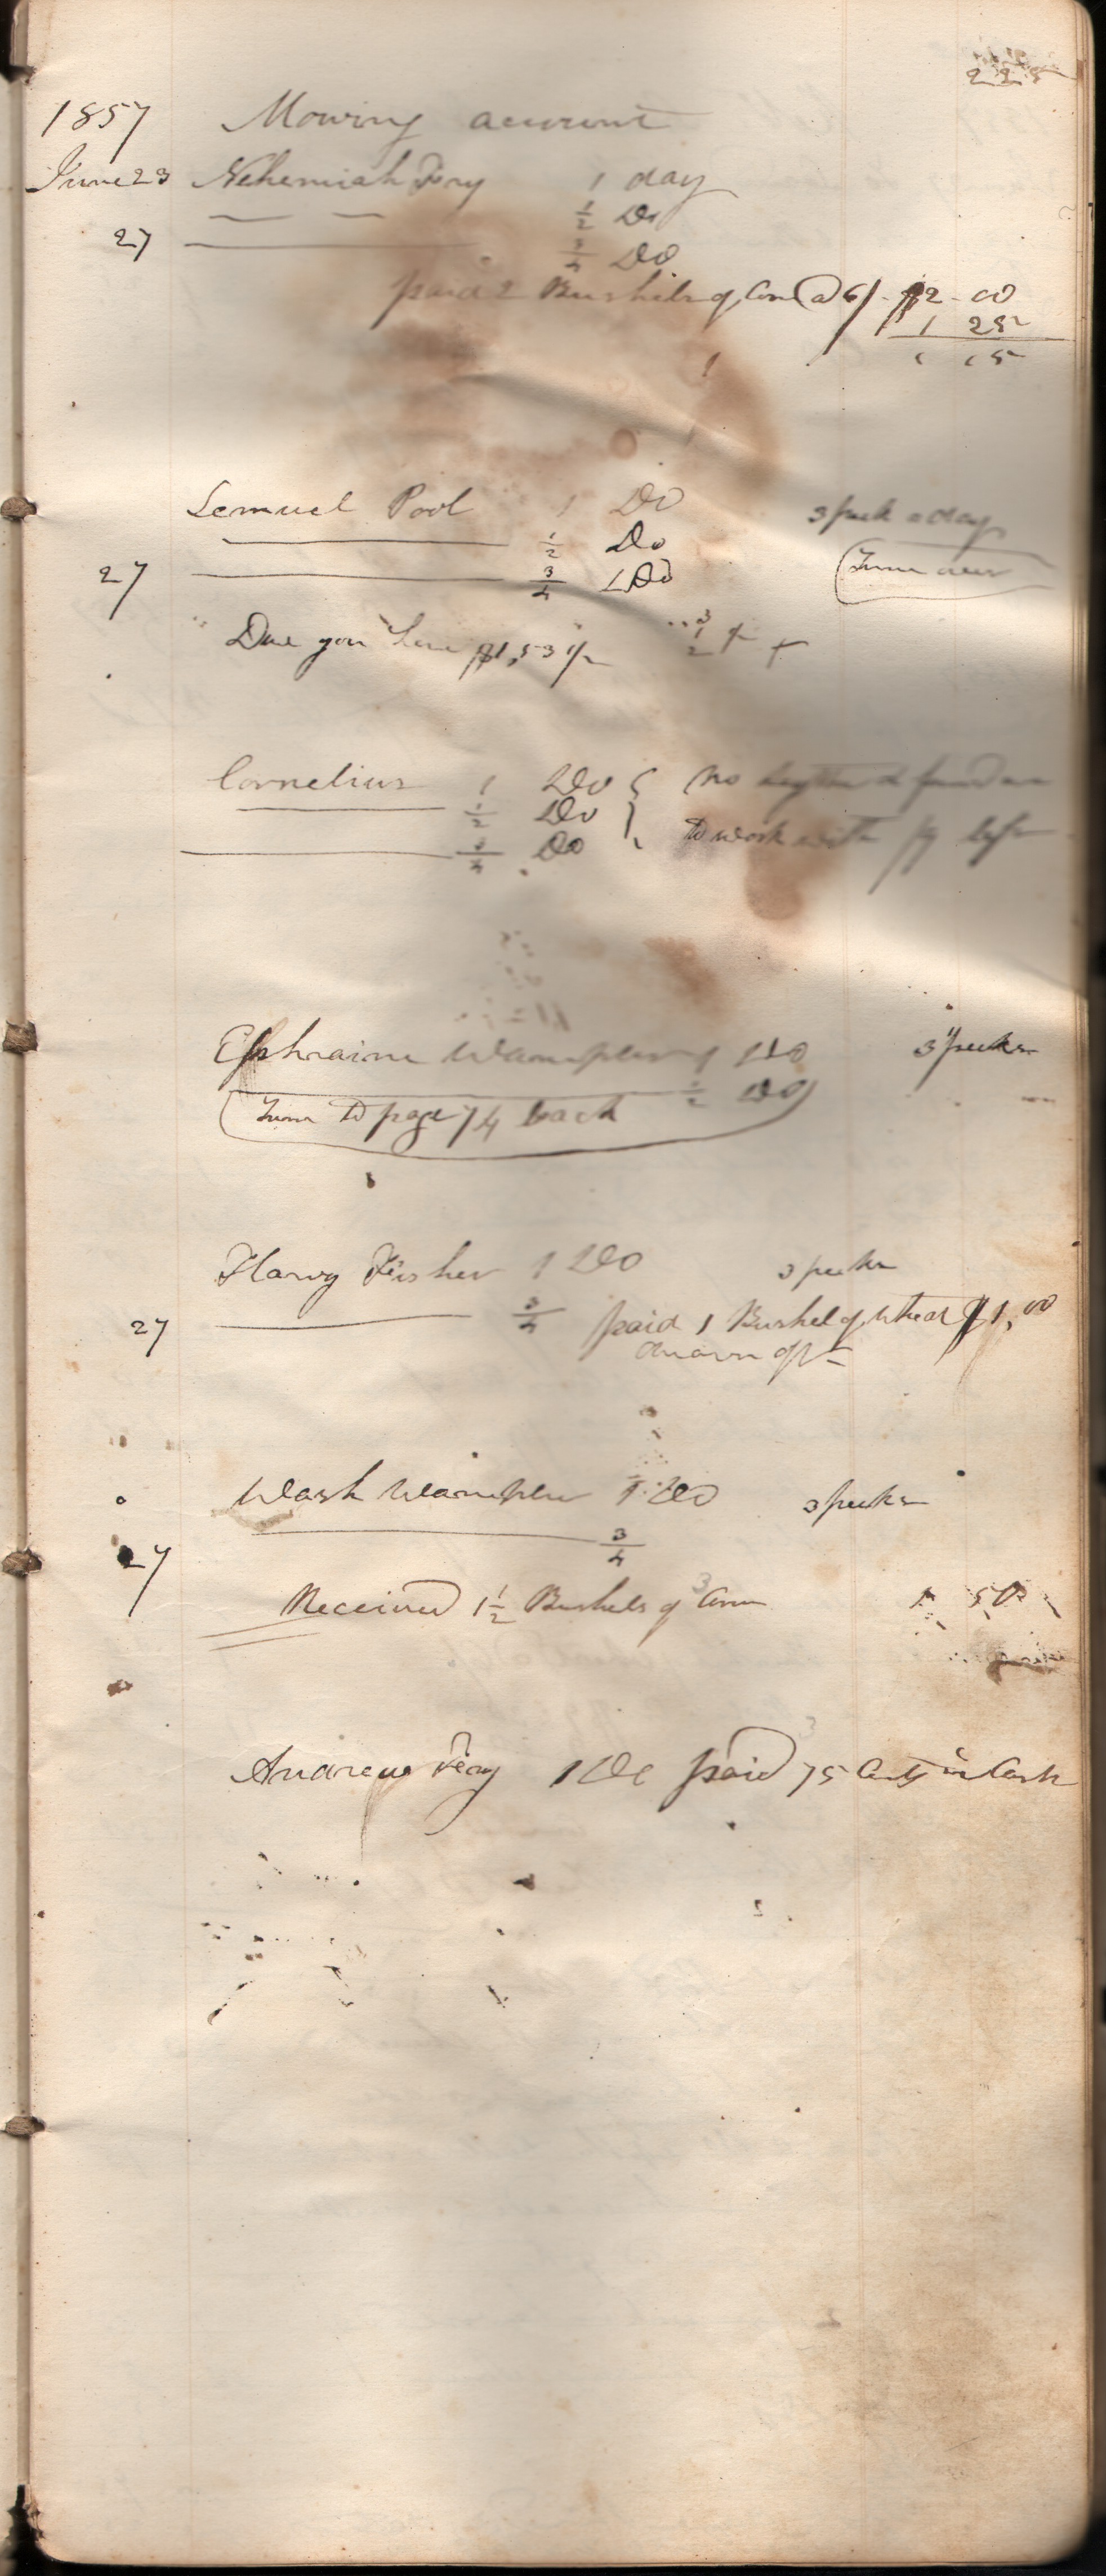 225
1857 Mowing account
June 23 Nehemiah Fry 1 day
1/2 Do
27 3/4 Do
paid 2 Bushels of Corn @ 6/- $2-00
1 25
Lemuel Pool 1 Do 3 peck a day
1/2 Do Turn over
27 3/4 Do
Due you here $1,53
Cornelius 1 Do No
1/2 Do
3/4 Do to work with
Ephraim Wampler 1 Do 3 pecks
1/2 Do
Turn to page 74 back
Harvy Fisher 1 Do 3 pecks
27 3/4 paid 1 Bushel of wheat $1,00
drawn off
Wash Wampler 1 Do 3 pecks
27 3/4
Received 1 1/2 Bushels of Corn 1 50
Andrew Fry 1 Do paid 75 Cents in Cash